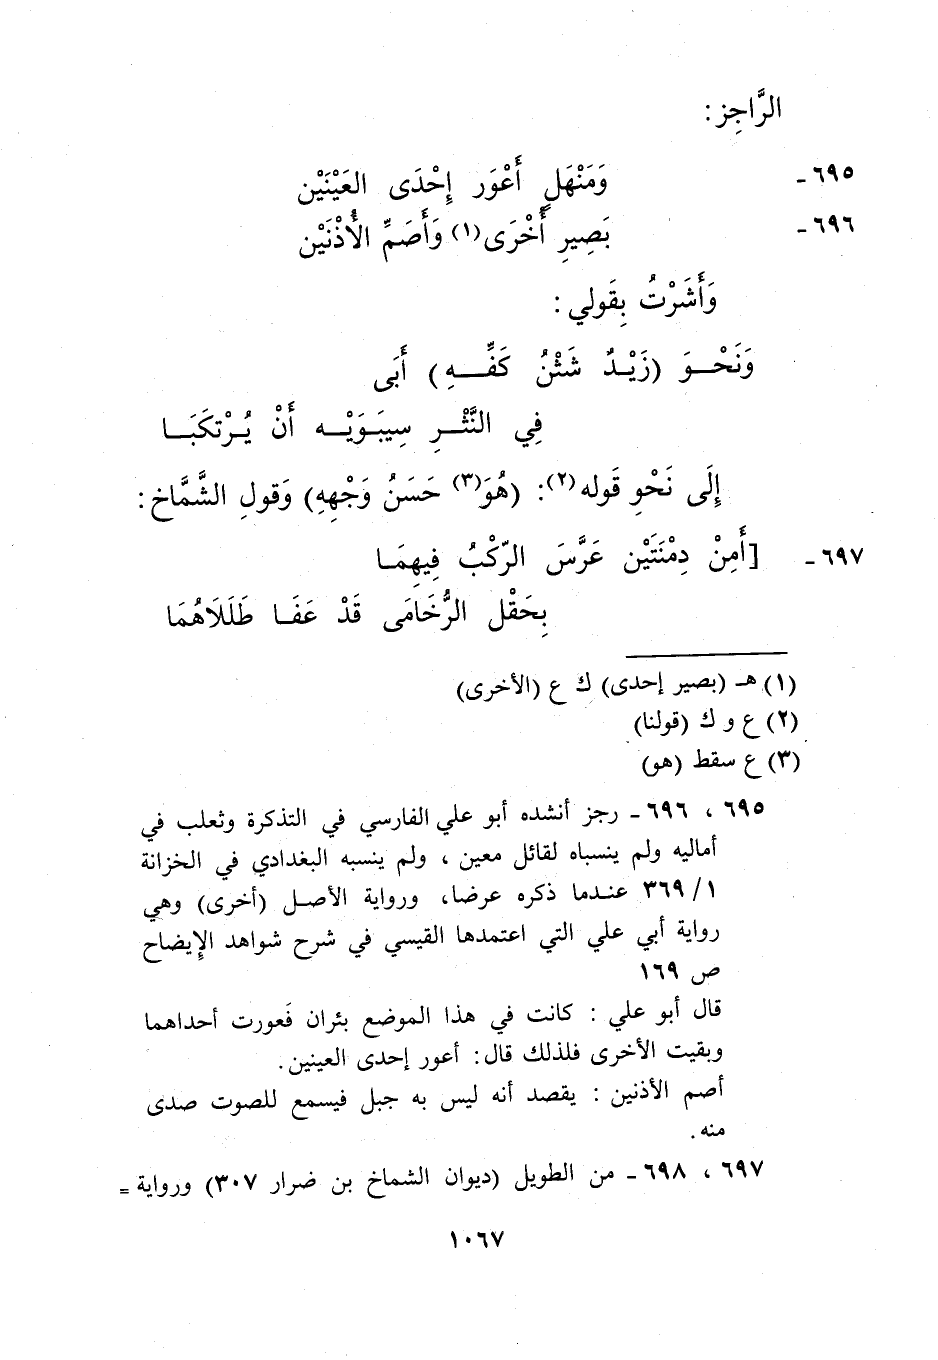 الرَّاجِز:
٦٩٥ـ وَمَنْهَلٍ أَعْوَر إِحْدَى العَيْنَيْن
٦٩٦ـ بَصِيرِ أُخْرَى(١) وَأَصَمِّ الأُذْنَيْن
وَأَشَرْتُ بِقَولي:
وَنَحْوَ (زَيْدٌ شَثْنُ كَفِّهِ) أَبَى
فِي النَّثْرِ سِيبَوَيْه أَنْ يُرْتَكَبَا
إِلَى نَحْوِ قَوله(٢): (هُوَ(٣) حَسَنُ وَجْهِهِ) وَقولِ الشَّمَّاخ:
٦٩٧ـ [أَمِنْ دِمْنَتَيْن عَرَّسَ الرّكْبُ فِيهِمَا
بِحَقْل الرُّخَامَى قَدْ عَفَا طَلَلَاهُمَا
(١) هـ (بصير إحدى) ك ع (الأخرى)
(٢) ع و ك (قولنا)
(٣) ع سقط (هو)
٦٩٥ ، ٦٩٦ـ رجز أنشده أبو علي الفارسي في التذكرة وثعلب في
أماليه ولم ينسباه لقائل معين ، ولم ينسبه البغدادي في الخزانة
١/ ٣٦٩ عندما ذكره عرضا، ورواية الأصل (أخرى) وهي
رواية أبي علي التي اعتمدها القيسي في شرح شواهد الإيضاح
ص ١٦٩
قال أبو علي : كانت في هذا الموضع بئران فَعورت أحداهما
وبقيت الأخرى فلذلك قال: أعور إحدى العينين.
أصم الأذنين : يقصد أنه ليس به جبل فيسمع للصوت صدى
منه.
٦٩٧ ، ٦٩٨ـ من الطويل (ديوان الشماخ بن ضرار ٣٠٧) ورواية =
١٠٦٧